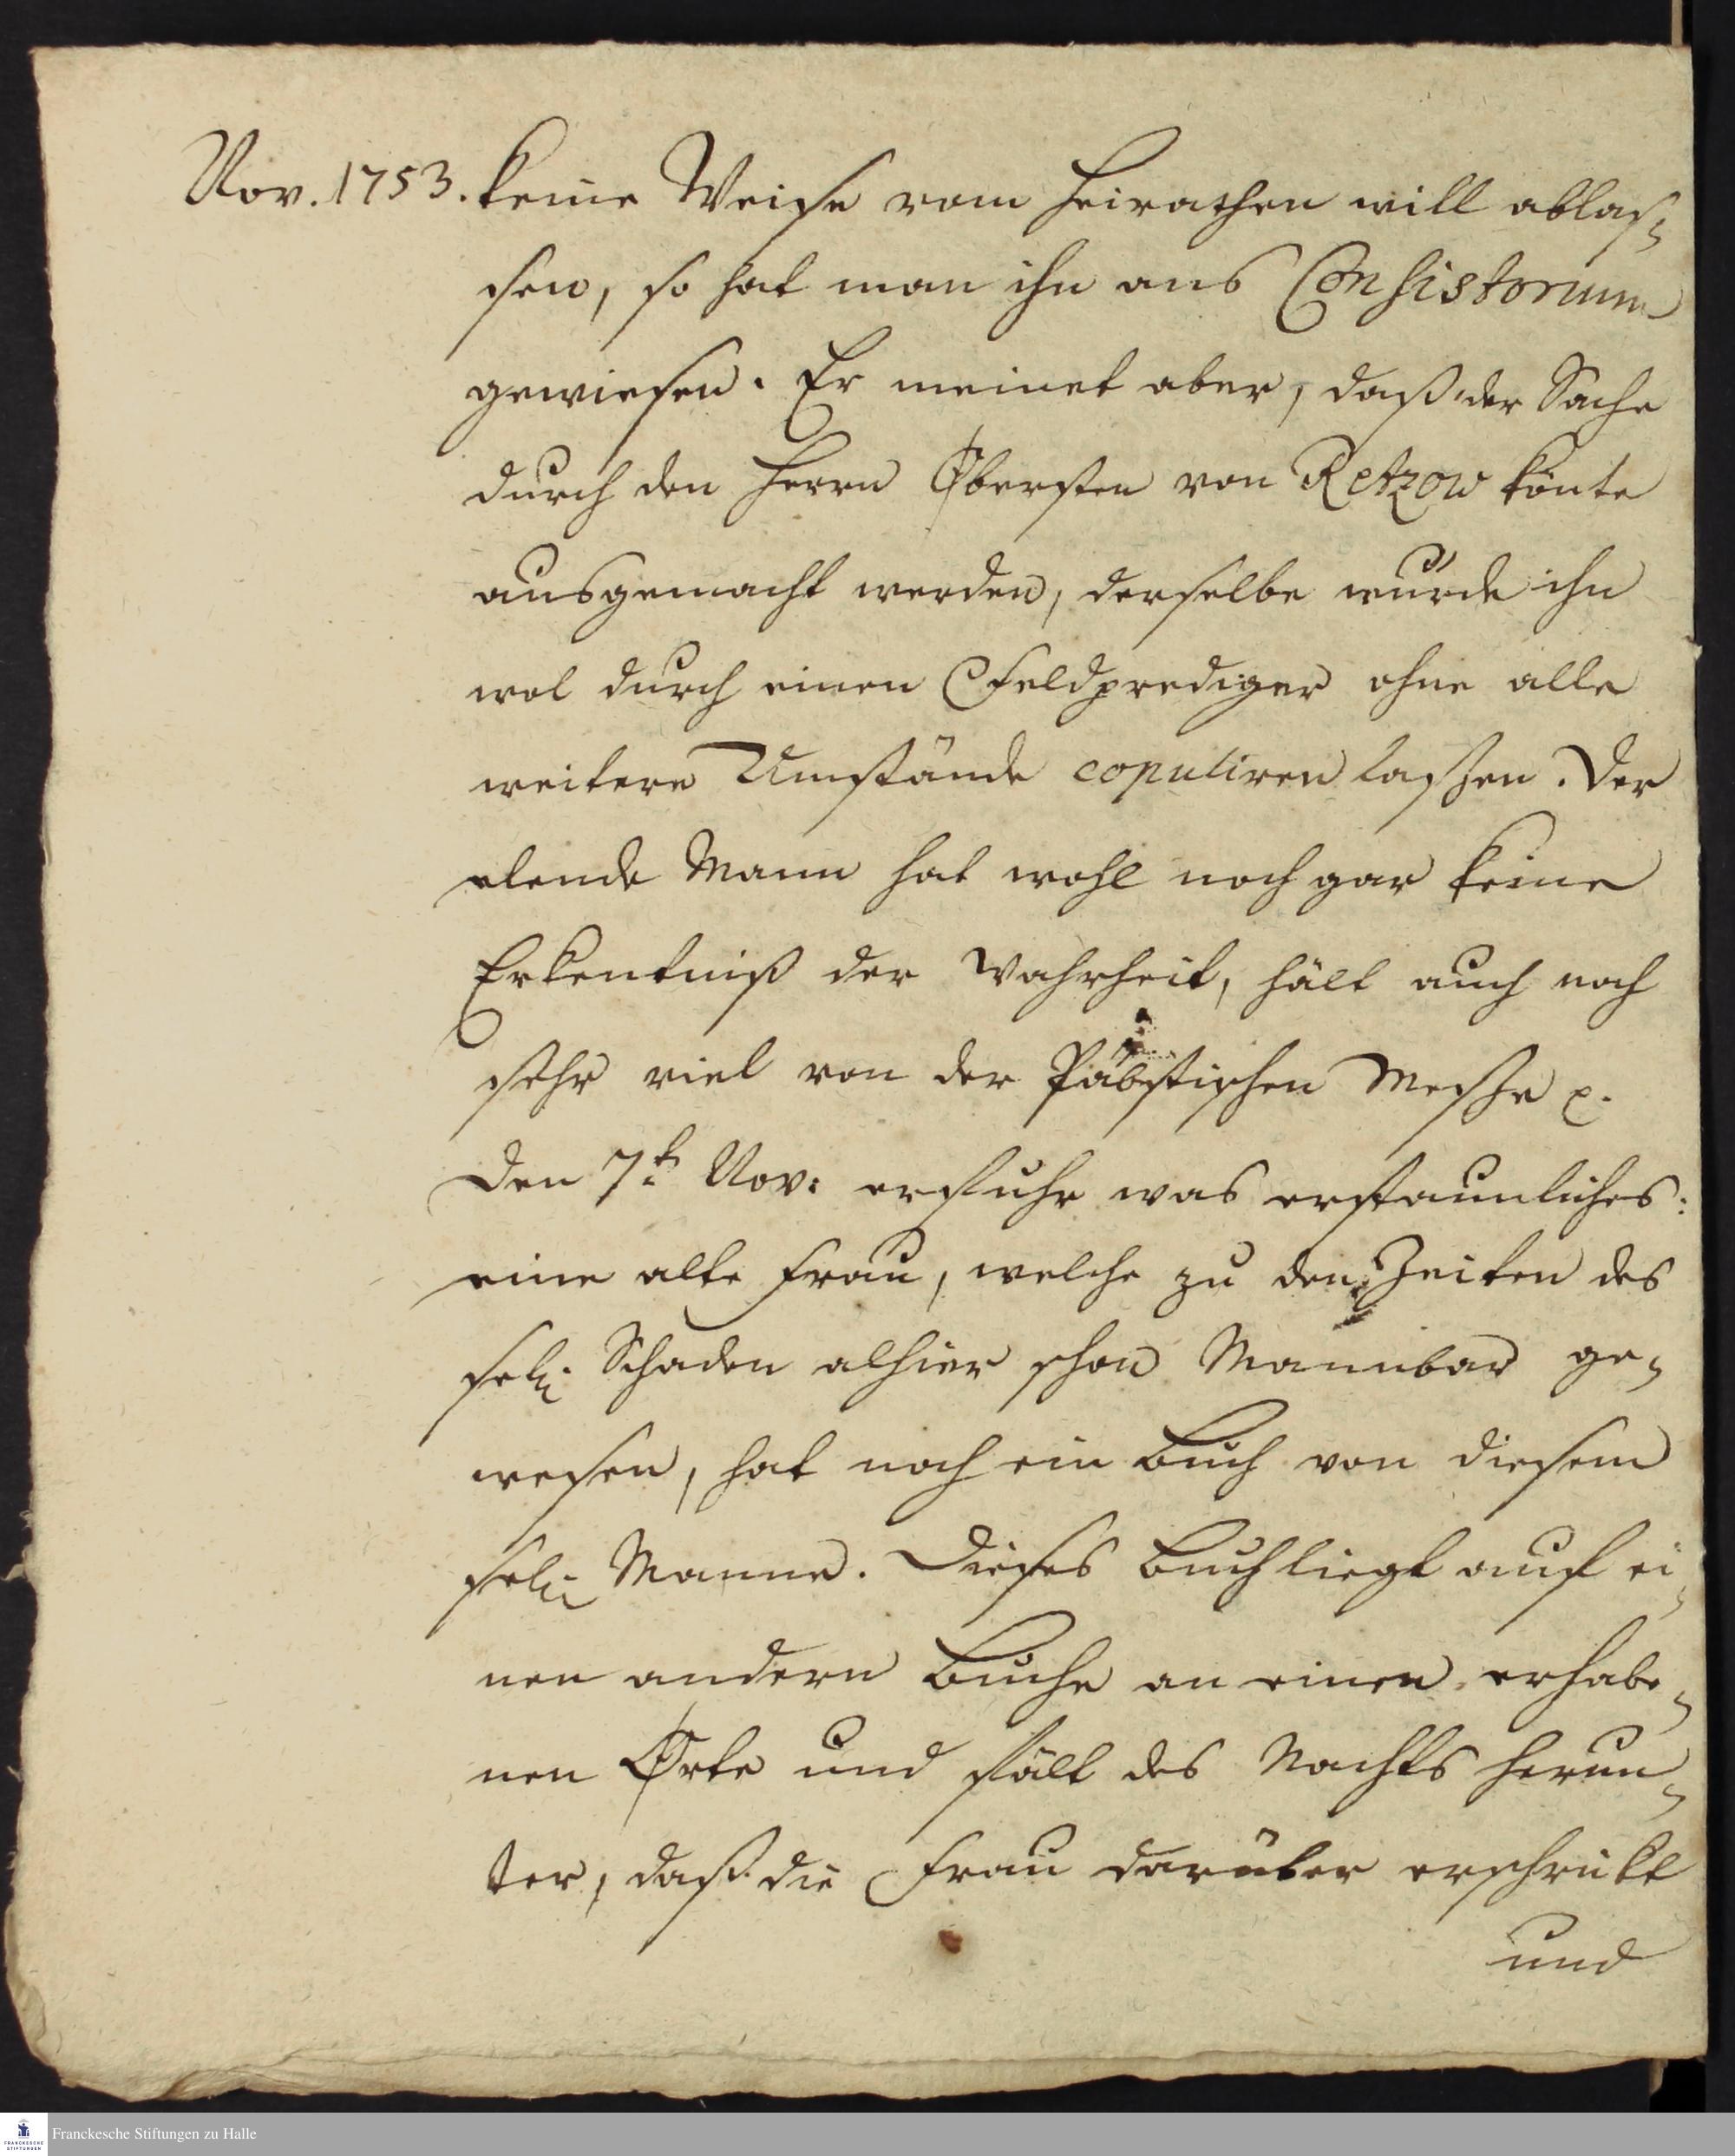 Nov. 1753. keine Weise vom Heirathen will ablas-
sen, so hat man ihn ans Consistorium
gewiesen. Er meinet aber, daß der Sache
durch den Herrn Obersten von Retzow könte
ausgemacht werden, derselbe würde ihn
wol durch einen Feldprediger ohne alle
weitere Umstände copuliren laßen. Der
elende Mann hat wohl noch gar keine
Erkentniß der Wahrheit, hält auch noch
sehr viel von der Päbstischen Meße p.
Den 7t. Nov: erfuhr was erstaunliches:
eine alte Frau, welche zu den Zeiten des
sel. Schaden alhier schon Mannbar ge-
wesen, hat noch ein Buch von diesem
sel. Manne. Dieses Buch liegt auf ei-
nen andern Buche an einen erhabe-
nen Orte und fält des Nachts herun-
ter, daß die Frau darüber erschrickt
und
Franckesche Stiftungen zu Halle
FRANCKESCHE
STIFTUNGEN